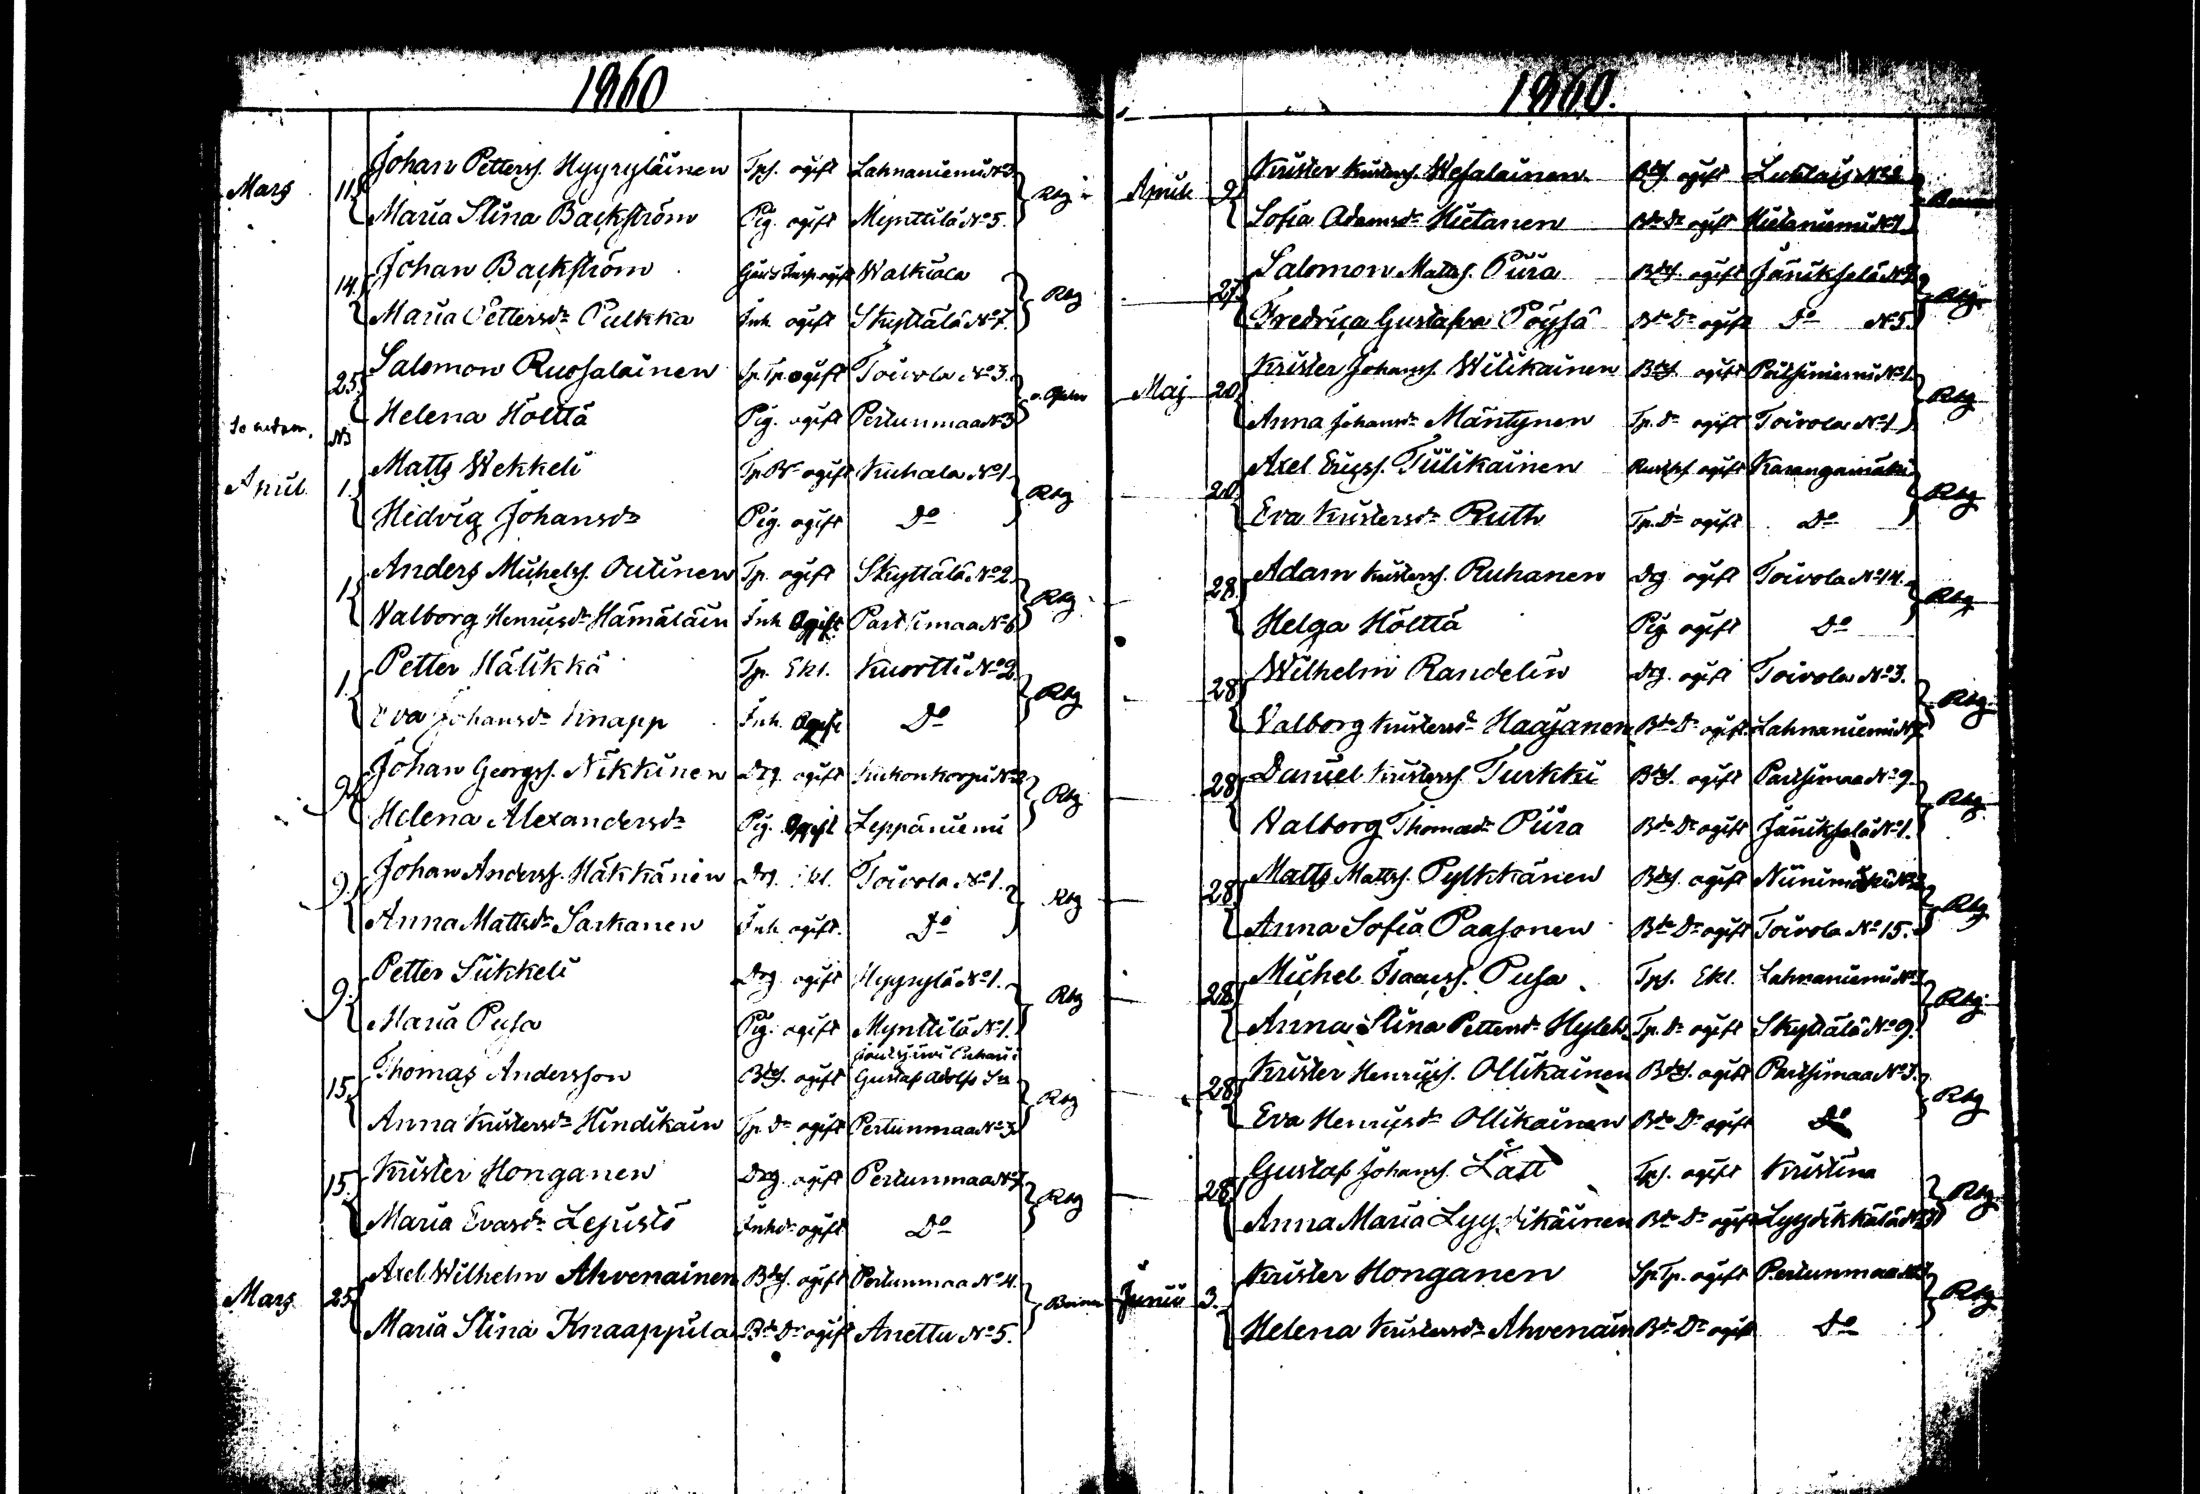 1860
Mars 11. Johan Petterss. Hyyryläinen Tps. ogift Lahnaniemi No 3
Maria Stina Backström Pig. ogift Mynttilä No 5. Rbg
14. Johan Backström ogift Walkiala
Maria Pettersdr Pulkka Inh. ogift Skyttälä No 7. Rbg
25. Salomon Ruosalainen Sp.Tp. ogift Toivola No 3.
Helena Hölttä Pig. ogift Pertunmaa No 3
April 1. Matts Wekkeli Tp.Br ogift Kuhala No 1.
Hedvig Johansdr Pig. ogift Do Rbg
1. Anders Michelss. Outinen Tp. ogift Skyttälä No 2.
Valborg Henricsdr Hämäläin Inh. ogift Partsimaa No 6 Rbg
1. Petter Hälikkä Tp. Ekl. Kuortti No 2.
Eva Johansdr Knapp Inh. ogift Do Rbg
9. Johan Georgss. Nikkinen Drg. ogift Kukonkorpi No 2
Helena Alexandersdr Pig. ogift Leppäniemi Rbg
9. Johan Anderss. Häkkänen Drg. Ekl. Toivola No 1.
Anna Mattsdr Sarkanen Inh. ogift. Do Rbg
9. Petter Sikkeli Drg. ogift Hyyrylä No 1.
Maria Pusa Pig. ogift Mynttilä No 1. Rbg
15. Thomas Andersson Bds. ogift Gustaf Adolfs Sn
Anna Kristersdr Hindikain Tp.Dr ogift Pertunmaa No 3. Rbg
15. Krister Honganen Drg. ogift Pertunmaa No 7.
Maria Evasdr Lejusto Inhdr ogift Do Rbg
Mars 25. Axel Wilhelm Ahvenainen Bds. ogift Pertunmaa No 4.
Maria Stina Knaappila Bde Dr ogift Anettu No 5.
1860.
April 9. Krister Kristerss. Wesalainen. Bds. ogift
Sofia Adamsdr Hietanen Bde Dr ogift Hietaniemi No 1.
27. Salomon Mattss. Piira Bds. ogift Jänikselä
Fredrica Gustafva Pöysä Bde Dr ogift Do No 5. Rbg.
Maj 20. Krister Johanss. Wilikainen Bds. ogift Paitsiniemi No 1.
Anna Johansdr Mäntynen Tp.Dr ogift Toivola No 1. Rbg
20. Axel Ericss. Tiilikainen ogift Karangamäki
Eva Kristersdr Ruth Tp.Dr ogift Do Rbg
28. Adam Kristerss. Ruhanen Drg ogift Toivola No 14.
Helga Hölttä Pig. ogift Do Rbg
28. Wilhelm Randelin Drg. ogift Toivola No 3.
Valborg Kristersdr Haajanen Bde Dr ogift Lahnaniemi Rbg.
28. Daniel Kristerss. Turkki Bds. ogift Partsimaa No 9.
Valborg Thomasdr Piira Bde Dr ogift Jänikselä No 1. Rbg
28. Matts Mattss. Pylkkänen Bds. ogift Niinimäki
Anna Sofia Paasonen Bde Dr ogift Toivola No 15. Rbg
28. Michel Isacss. Pusa Tps. Ekl. Lahnaniemi
Anna Stina Pettersdr Tp.Dr ogift Skyttälä No 9. Rbg.
28. Krister Henricss. Ollikainen Bds. ogift Partsimaa No 7.
Eva Henricsdr Ollikainen Bde Dr ogift Do Rbg
28. Gustaf Johanss. Lätt Tps. ogift Kristina
Anna Maria Lyydikäinen Bde Dr ogift Lyydikkälä Rbg
Junii 3. Krister Honganen Sp.Tp. ogift Pertunmaa
Helena Kristersdr Ahvenain Bde Dr ogift Do Rbg